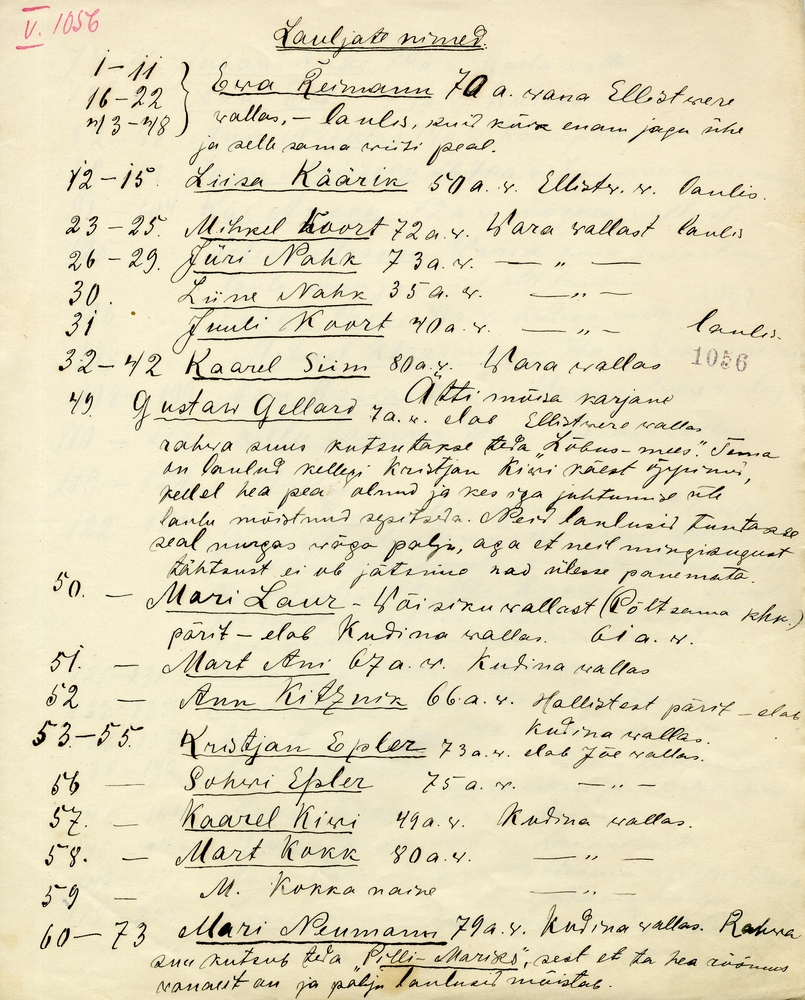 V. 1056
Lauljate nimed.
1-11
16-22
43-48
Ewa Reimann 70 a. wana Ellistwere
wallas, - laulis, kuid kõik enam jagu ühe
ja selle sama wiisi peal.
12-15. Liisa Käärik 50 a. w. Ellistw. w. laulis.
23-25. Mihkel Koort 72 a. w. Wara wallast laulis
26-29. Jüri Nahk 73 a. w. — " —
30. Liine Nahk 35 a. w. — " —
31 Juuli Koort 40 a. w. — " — laulis.
32-42 Kaarel Siim 80 a. w. Wara wallas
1056
49. Gustaw Gellard Ätti mõisa karjane
7 a. w. elab Ellistwere wallas
rahwa suus kutsutakse teda "Lõbus-mees". Tema
on laulud kellegi Kristjan Kiwi käest õppinud,
kellel hea pea olnud ja kes iga juhtumise üle
laulu mõistnud sepitseda. Neid laulusid tuntakse
seal nurgas wäga palju, aga et neil mingisugust
tähtsust ei ole jätsime nad ülesse panemata.
50. — Mari Laur - Wõisiku wallast (Põltsama khk.)
pärit - elab Kudina wallas. 61 a. w.
51. — Mart Ani 67 a. w. Kudina wallas
52 — Ann Kitznik 66 a. w. Hallistest pärit - elab
Kudina wallas.
53-55. Kristjan Epler 73 a. w. elab Jõe wallas.
56 — Sohwi Epler 75 a. w. — " —
57. — Kaarel Kiwi 49 a. w. Kudina wallas.
58. — Mart Kokk 80 a. w. — " —
59 — M. Kokka naine — " —
60-73 Mari Neumann 79 a. w. Kudina wallas. Rahwa
suu kutsub teda "Pilli-Mariks", sest et ta hea rõõmus
wanaeit on ja palju laulusid mõistab.